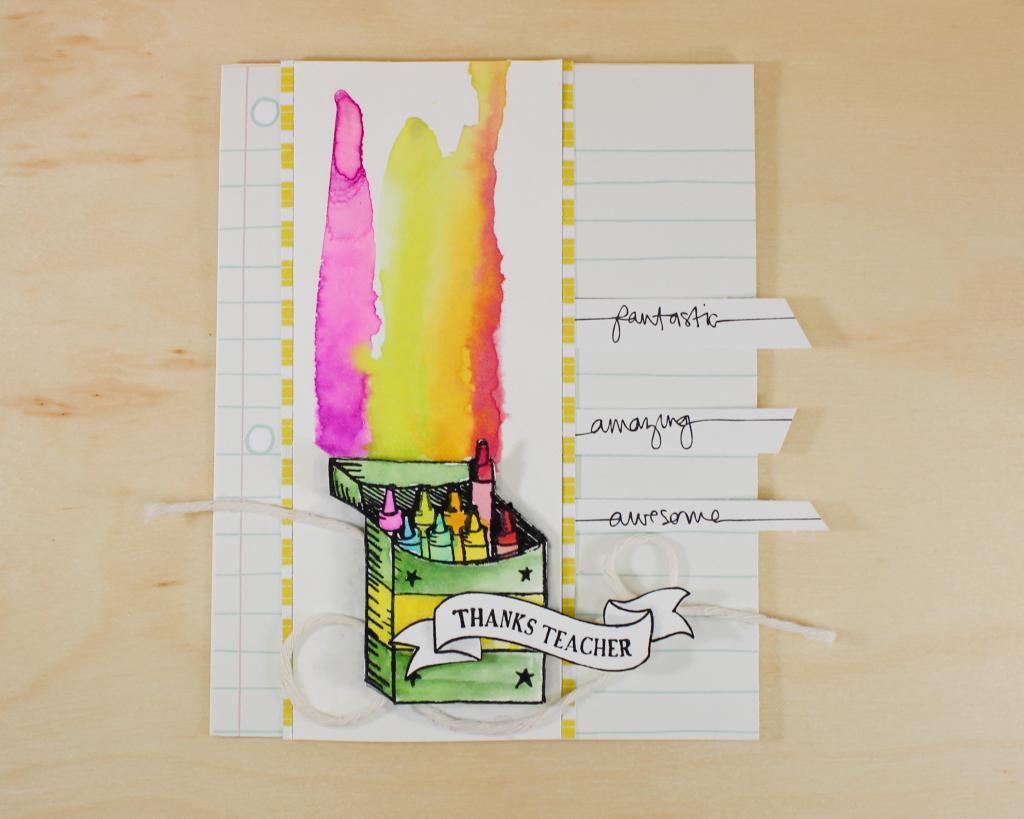 fantastic
amazing
awesome
THANKS TEACHER